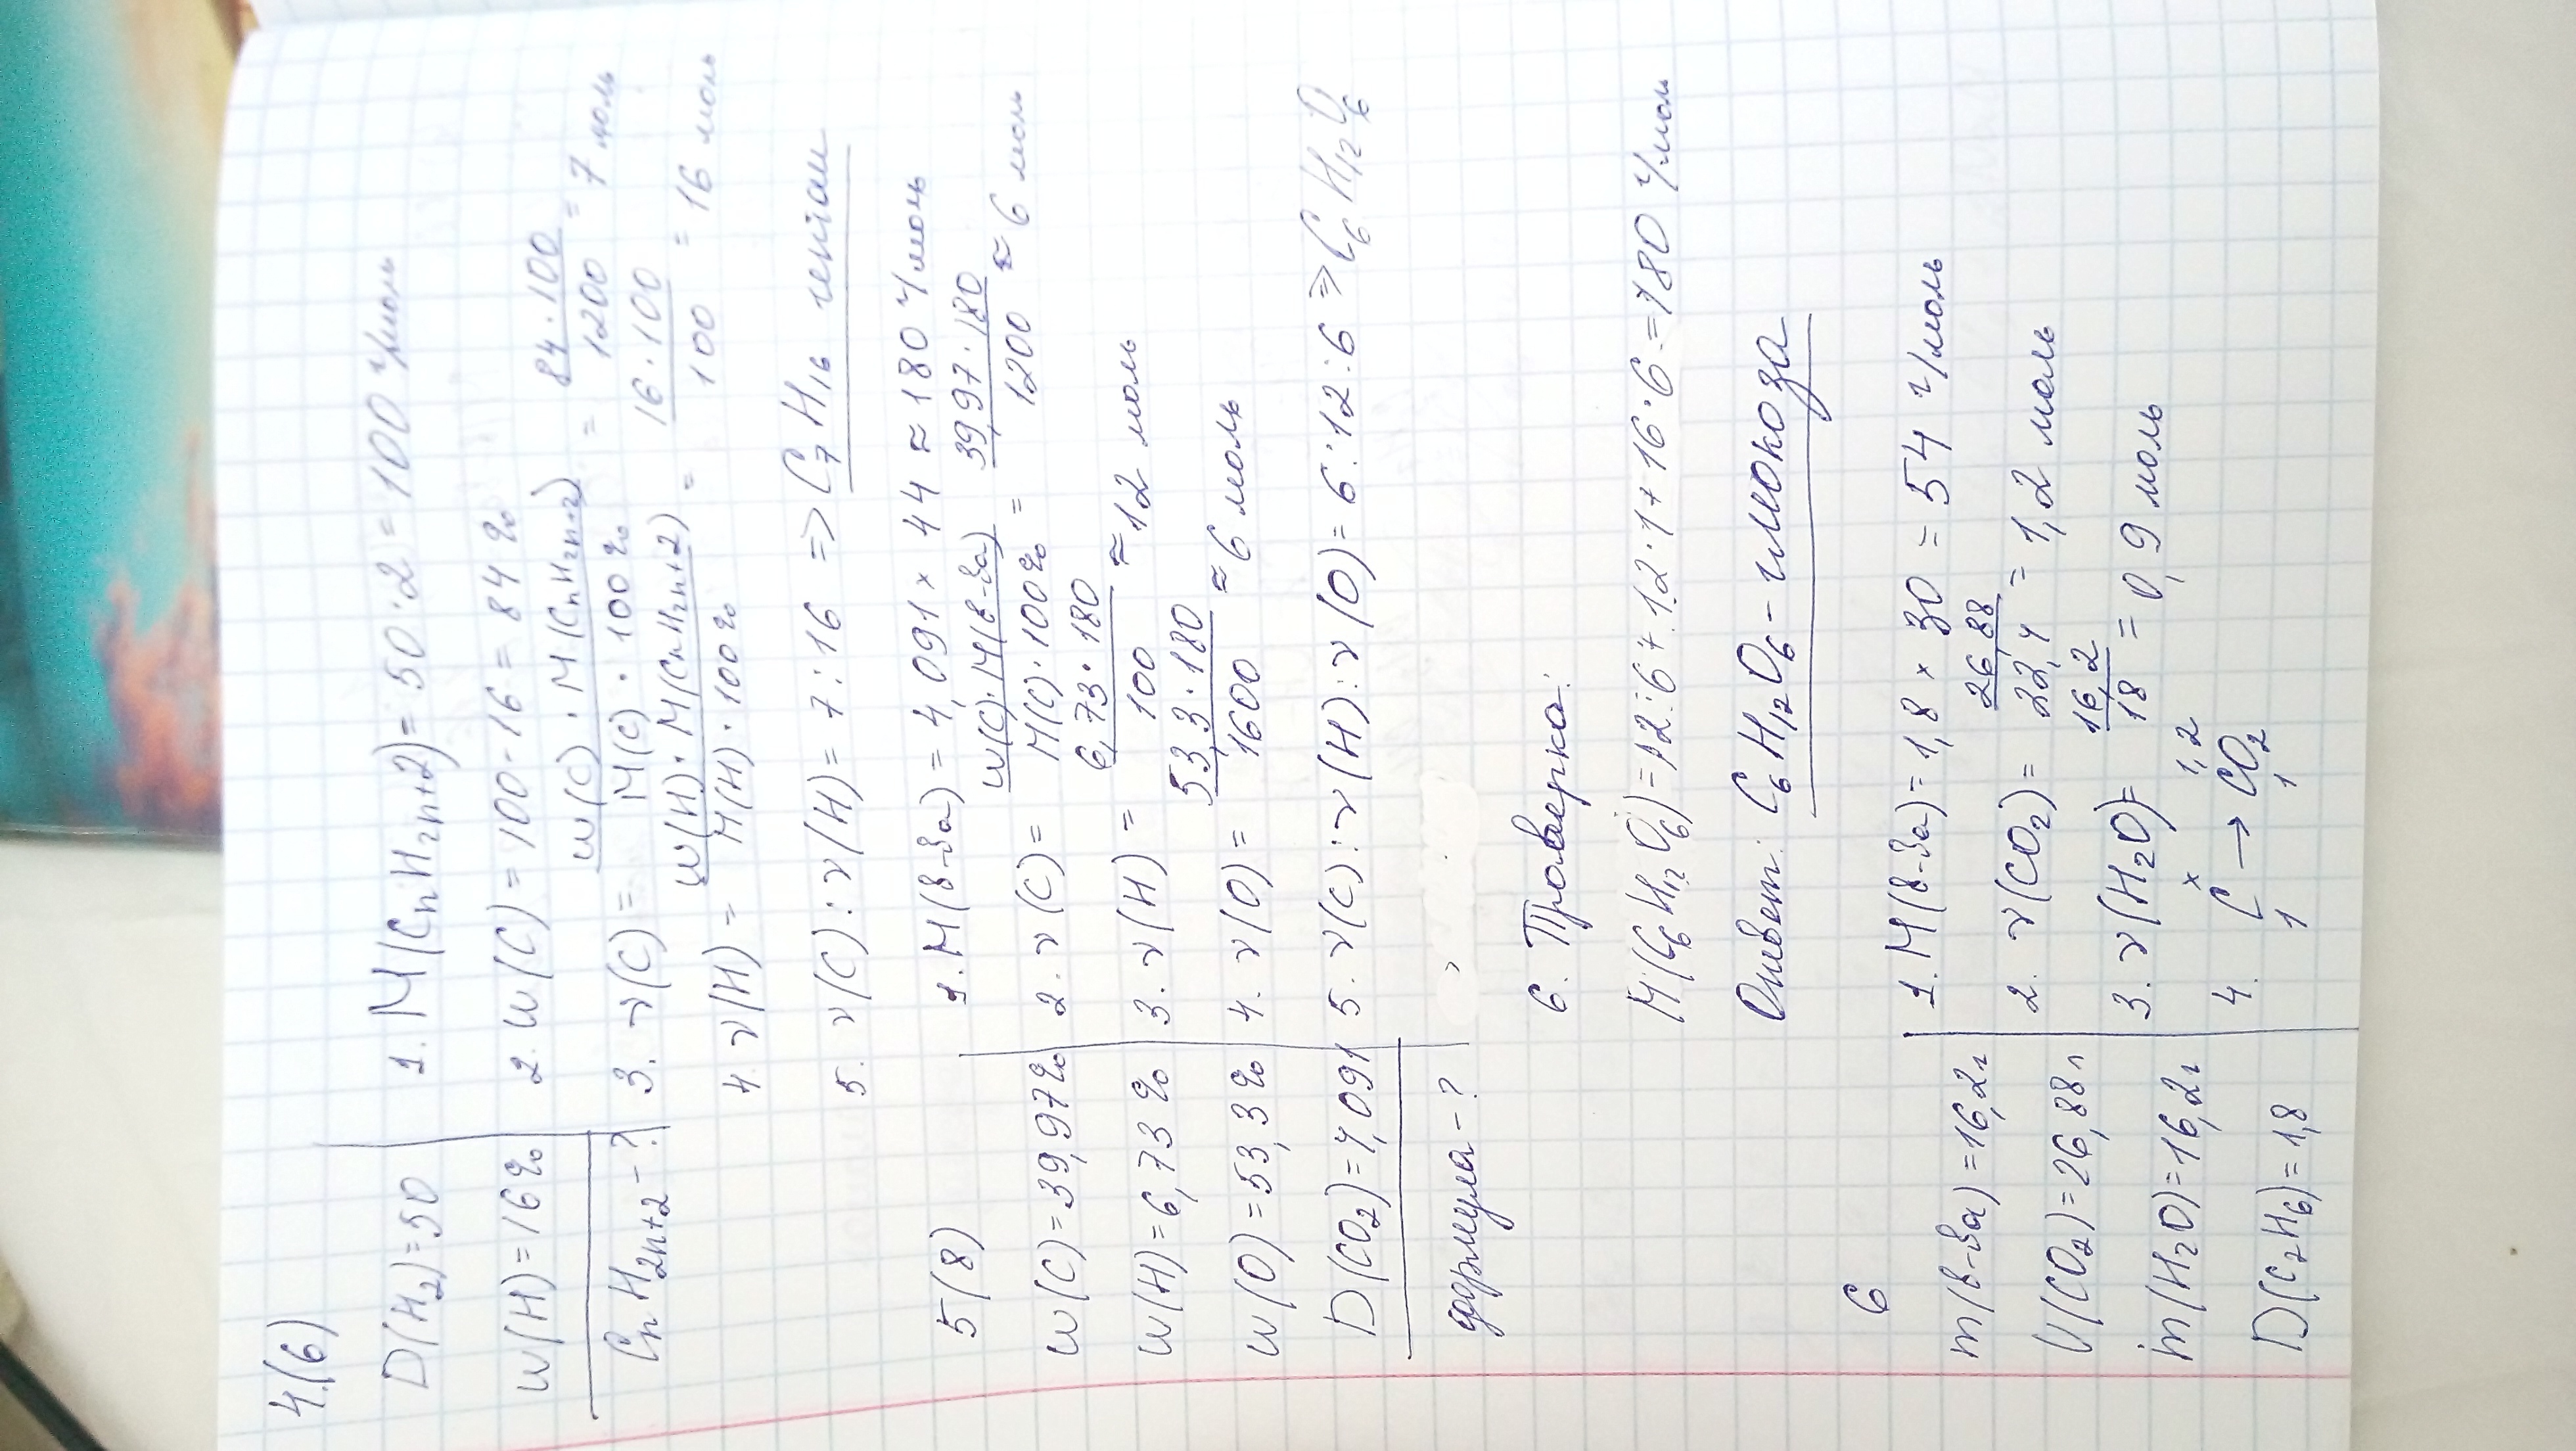 4.(6)
D(H₂)=50
w(H)=16%
CₙH₂ₙ₊₂-?
1. M(CₙH₂ₙ₊₂)=50·2=100 г/моль
2. w(C)=100-16=84%
3. ν(C)= w(C)·M(CₙH₂ₙ₊₂)/M(C)·100% = 84·100/1200 = 7 моль
4. ν(H)= w(H)·M(CₙH₂ₙ₊₂)/M(H)·100% = 16·100/100 = 16 моль
5. ν(C):ν(H)=7:16 => C₇H₁₆ гептан
5(8)
w(C)=39,97%
w(H)=6,73%
w(O)=53,3%
D(CO₂)=4,091
формула-?
1. M(в-ва)=4,091×44≈180 г/моль
2. ν(C)= w(C)·M(в-ва)/M(C)·100% = 39,97·180/1200 ≈ 6 моль
3. ν(H)= 6,73·180/100 ≈ 12 моль
4. ν(O)= 53,3·180/1600 ≈ 6 моль
5. ν(C):ν(H):ν(O)=6:12:6 => C₆H₁₂O₆
6. Проверка:
M(C₆H₁₂O₆)=12·6+12·1+16·6=180 г/мол
Ответ: C₆H₁₂O₆-глюкоза
6
m(в-ва)=16,2г
V(CO₂)=26,88л
m(H₂O)=16,2г
D(C₂H₆)=1,8
1. M(в-ва)=1,8×30=54 г/моль
2. ν(CO₂)= 26,88/22,4 = 1,2 моль
3. ν(H₂O)= 16,2/18 = 0,9 моль
x 1,2
4. C → CO₂
1 1